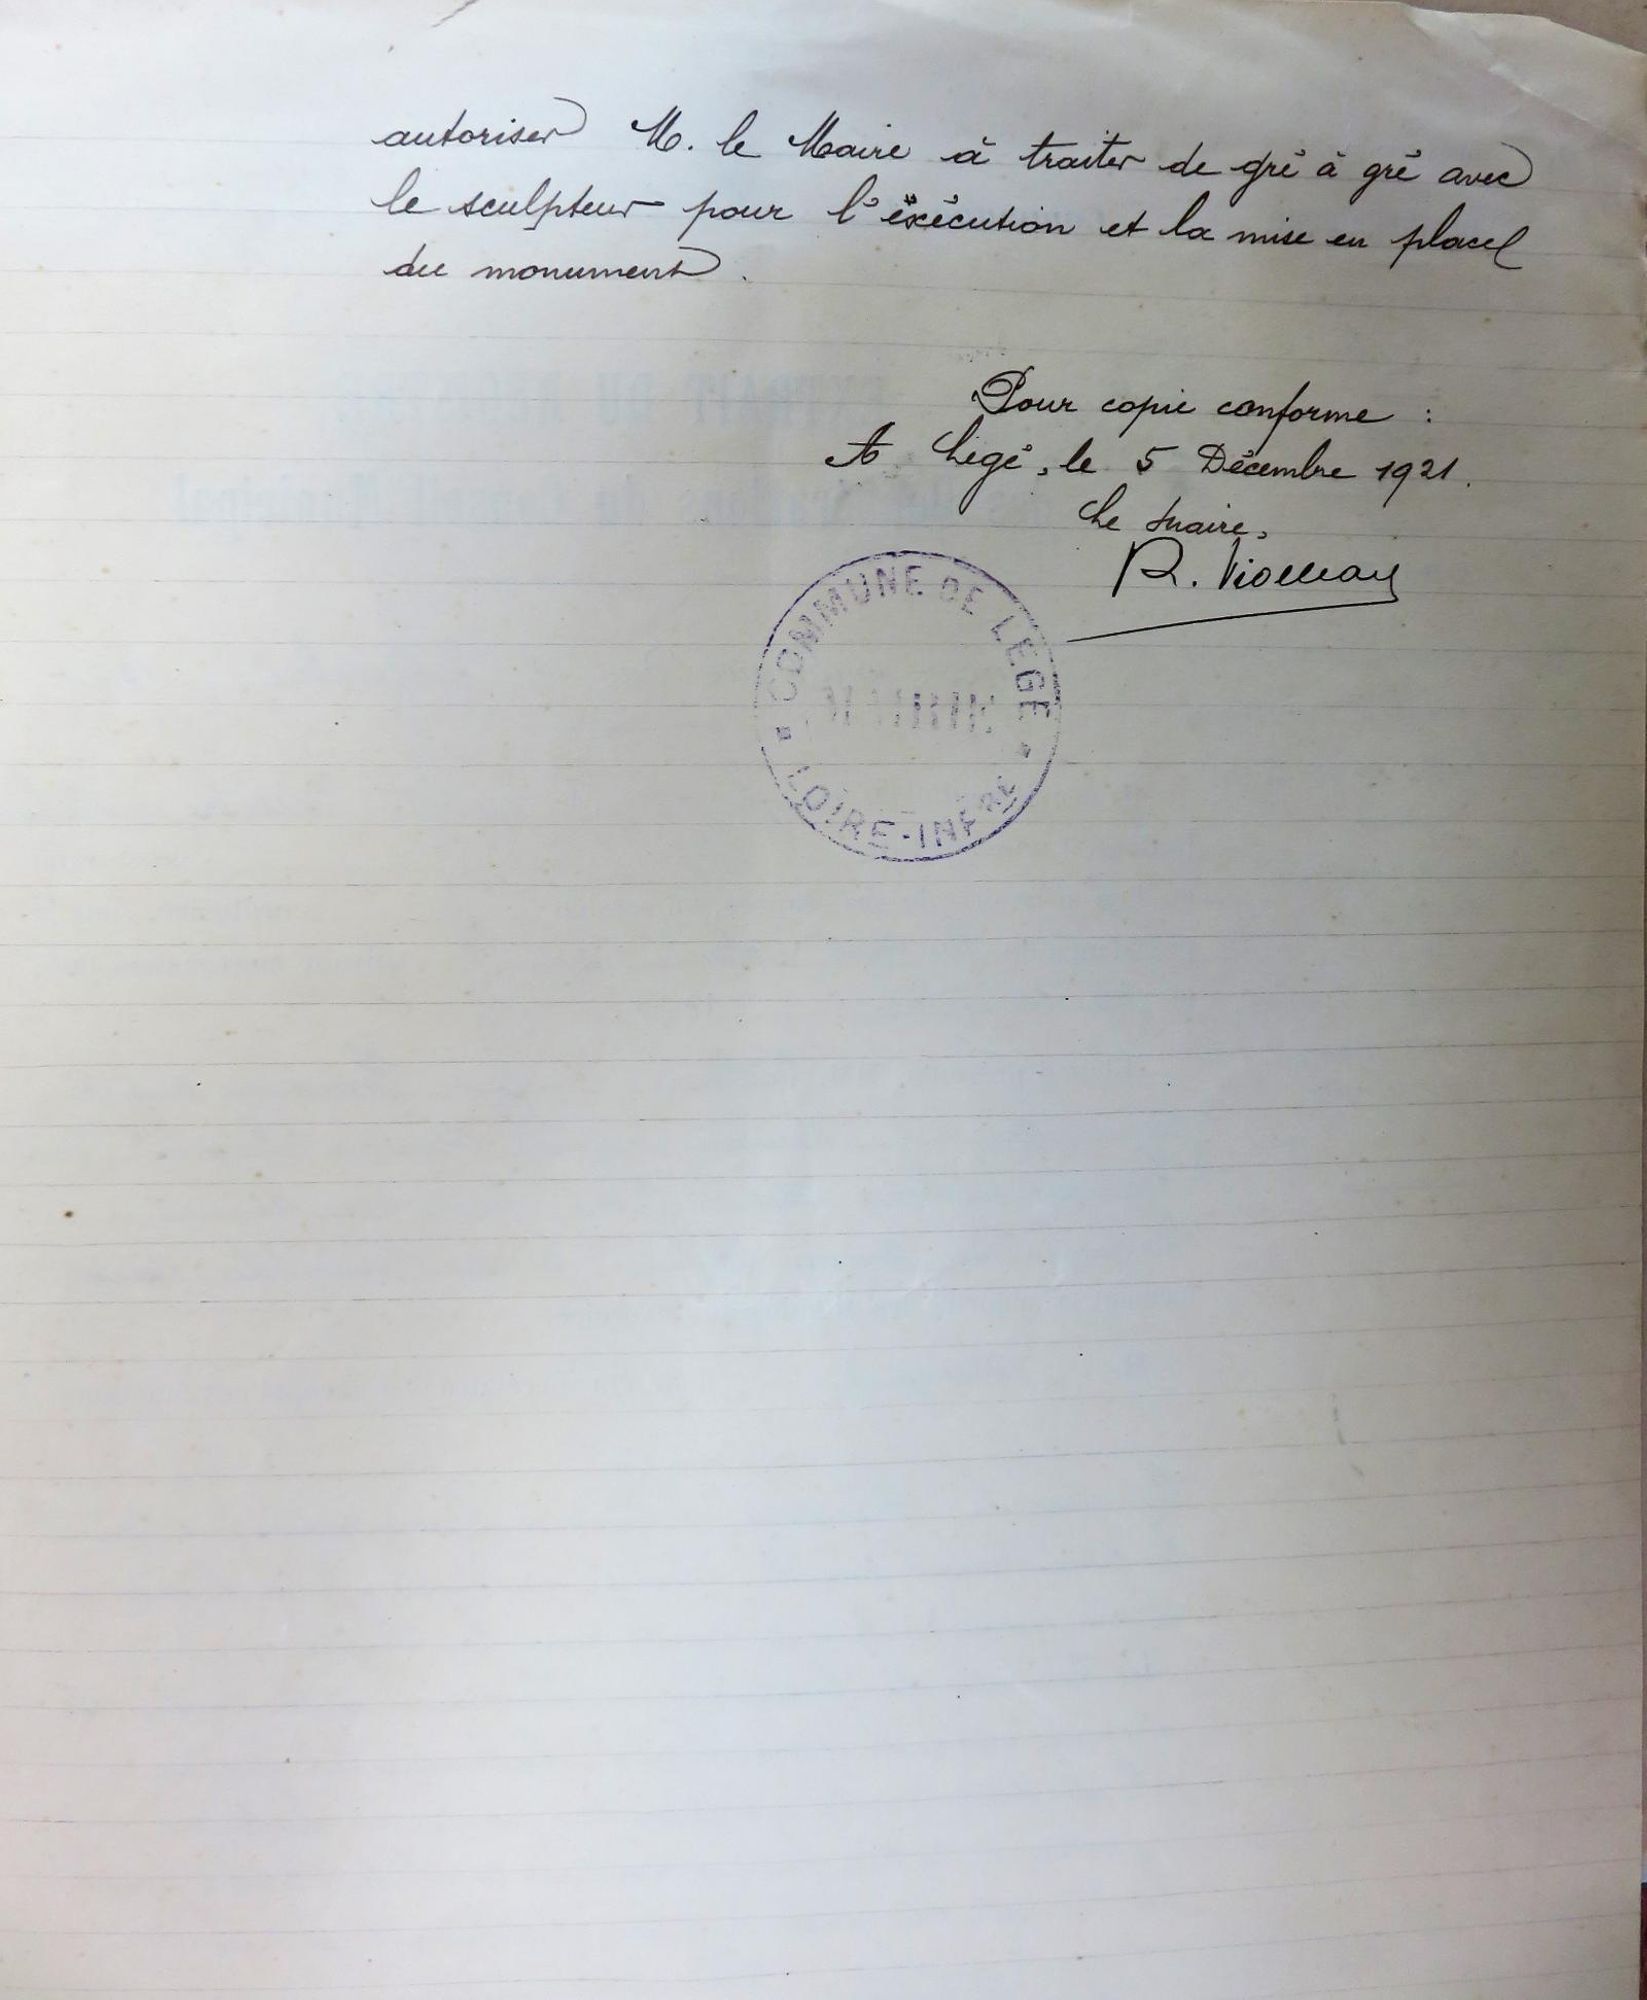 autoriser M. le Maire à traiter de gré à gré avec
le sculpteur pour l'éxécution et la mise en place
du monument.
Pour copie conforme :
A Legé, le 5 Décembre 1921.
Le maire,
R. Violleau
COMMUNE DE LEGÉ
MAIRIE
LOIRE-INFRE